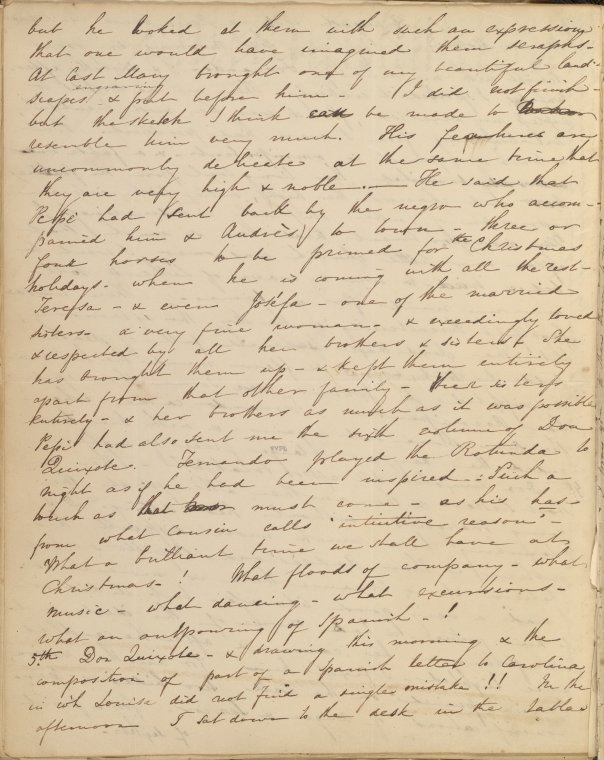 but he looked at them with such an expression
that one would have imagined them seraphs-
At last Mary brought one of my beautiful land-
engraving
scapes & put before him - I did not finish -
but the sketch I think can be made to
resemble him very much. His features are
uncommonly delicate at the same time that
they are very high & noble. — He said that
Pepe had (sent back by the negro who accom-
panied him & Andrès) to town - three or
four horses to be primed for the Christmas
holidays. when he is coming with all the rest-
Teresa - & even Joséfa - one of the married
sisters - a very fine woman - & exceedingly loved
& respected by all her brothers & sisters. She
has brought them up - & kept them entirely
apart from that other family - her sisters
entirely - & her brothers as much as it was possible
Pepe had also sent me the sixth volume of Don
Quixote. Fernando played the Rotunda to
night as if he had been inspired - Such a
touch as that must come - as his has -
from what Cousin calls "intuitive reason" -
What a brilliant time we shall have at
Christmas - ! What floods of company - what
music - what dancing - what excursions -
what an outpouring of Spanish - !
5th Don Quixote - & drawing this morning & the
composition of part of a Spanish letter to Carolina
in wh Louisa did not find a single mistake !! In the
afternoon I sat down to the desk in the